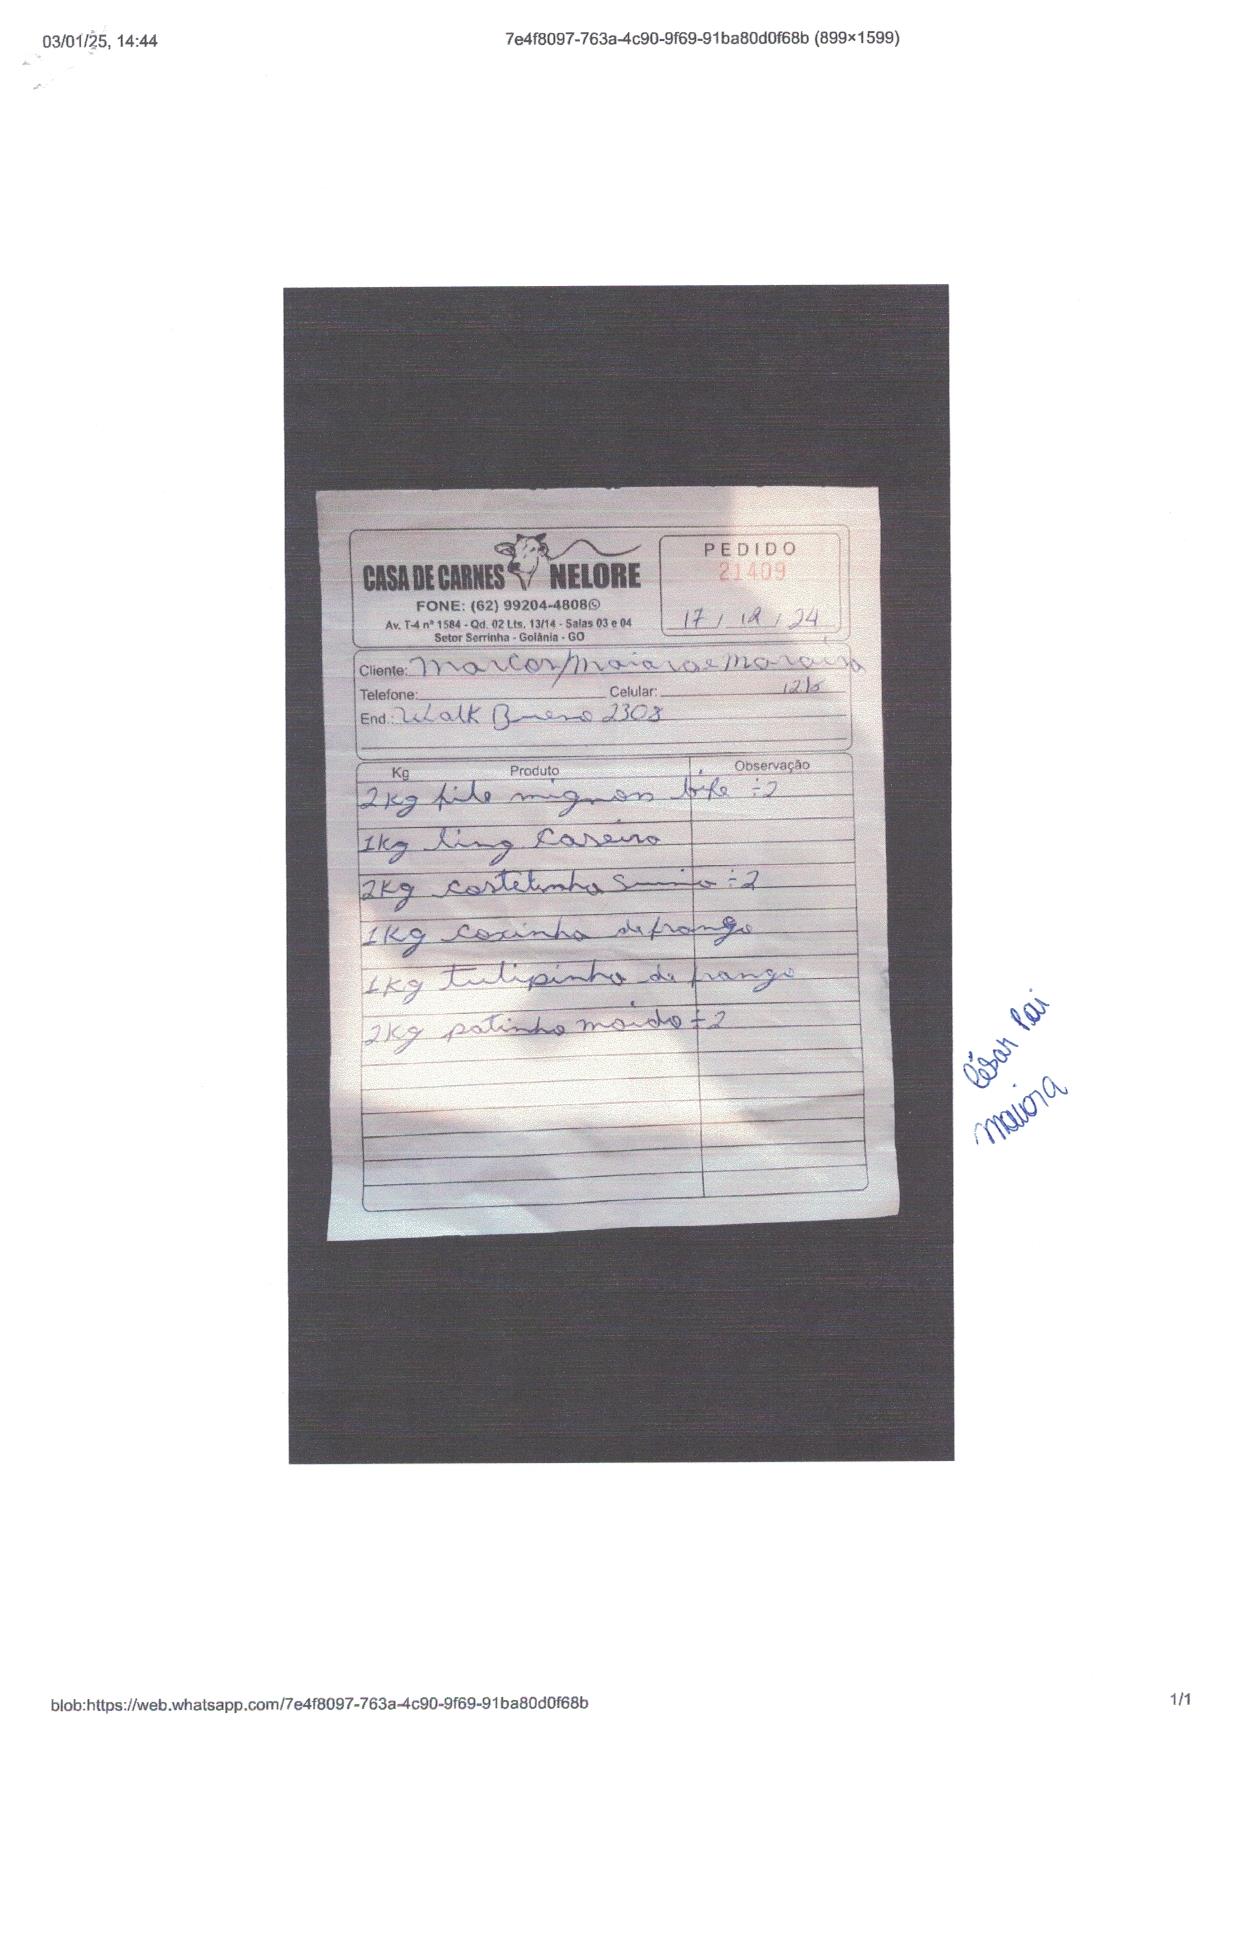 03/01/25, 14:44
7e4f8097-763a-4c90-9f69-91ba80d0f68b (899×1599)
CASA DE CARNES NELORE
FONE: (62) 99204-4808
Av. T-4 nº 1584 - Qd. 02 Lts. 13/14 - Salas 03 e 04
Setor Serrinha - Goiânia - GO
PEDIDO
21409
17 / 12 / 24
Cliente: Marcos/Maiara e Maraisa
Telefone: Celular:
End.: Walk Bueno 2308
Kg Produto Observação
2kg file mignon bife ÷2
1kg ling Caseiro
2kg costelinha Suino ÷2
1kg coxinha de frango
1kg tulipinha de frango
2kg patinho moido ÷2
César Pai
Maiora
blob:https://web.whatsapp.com/7e4f8097-763a-4c90-9f69-91ba80d0f68b
1/1